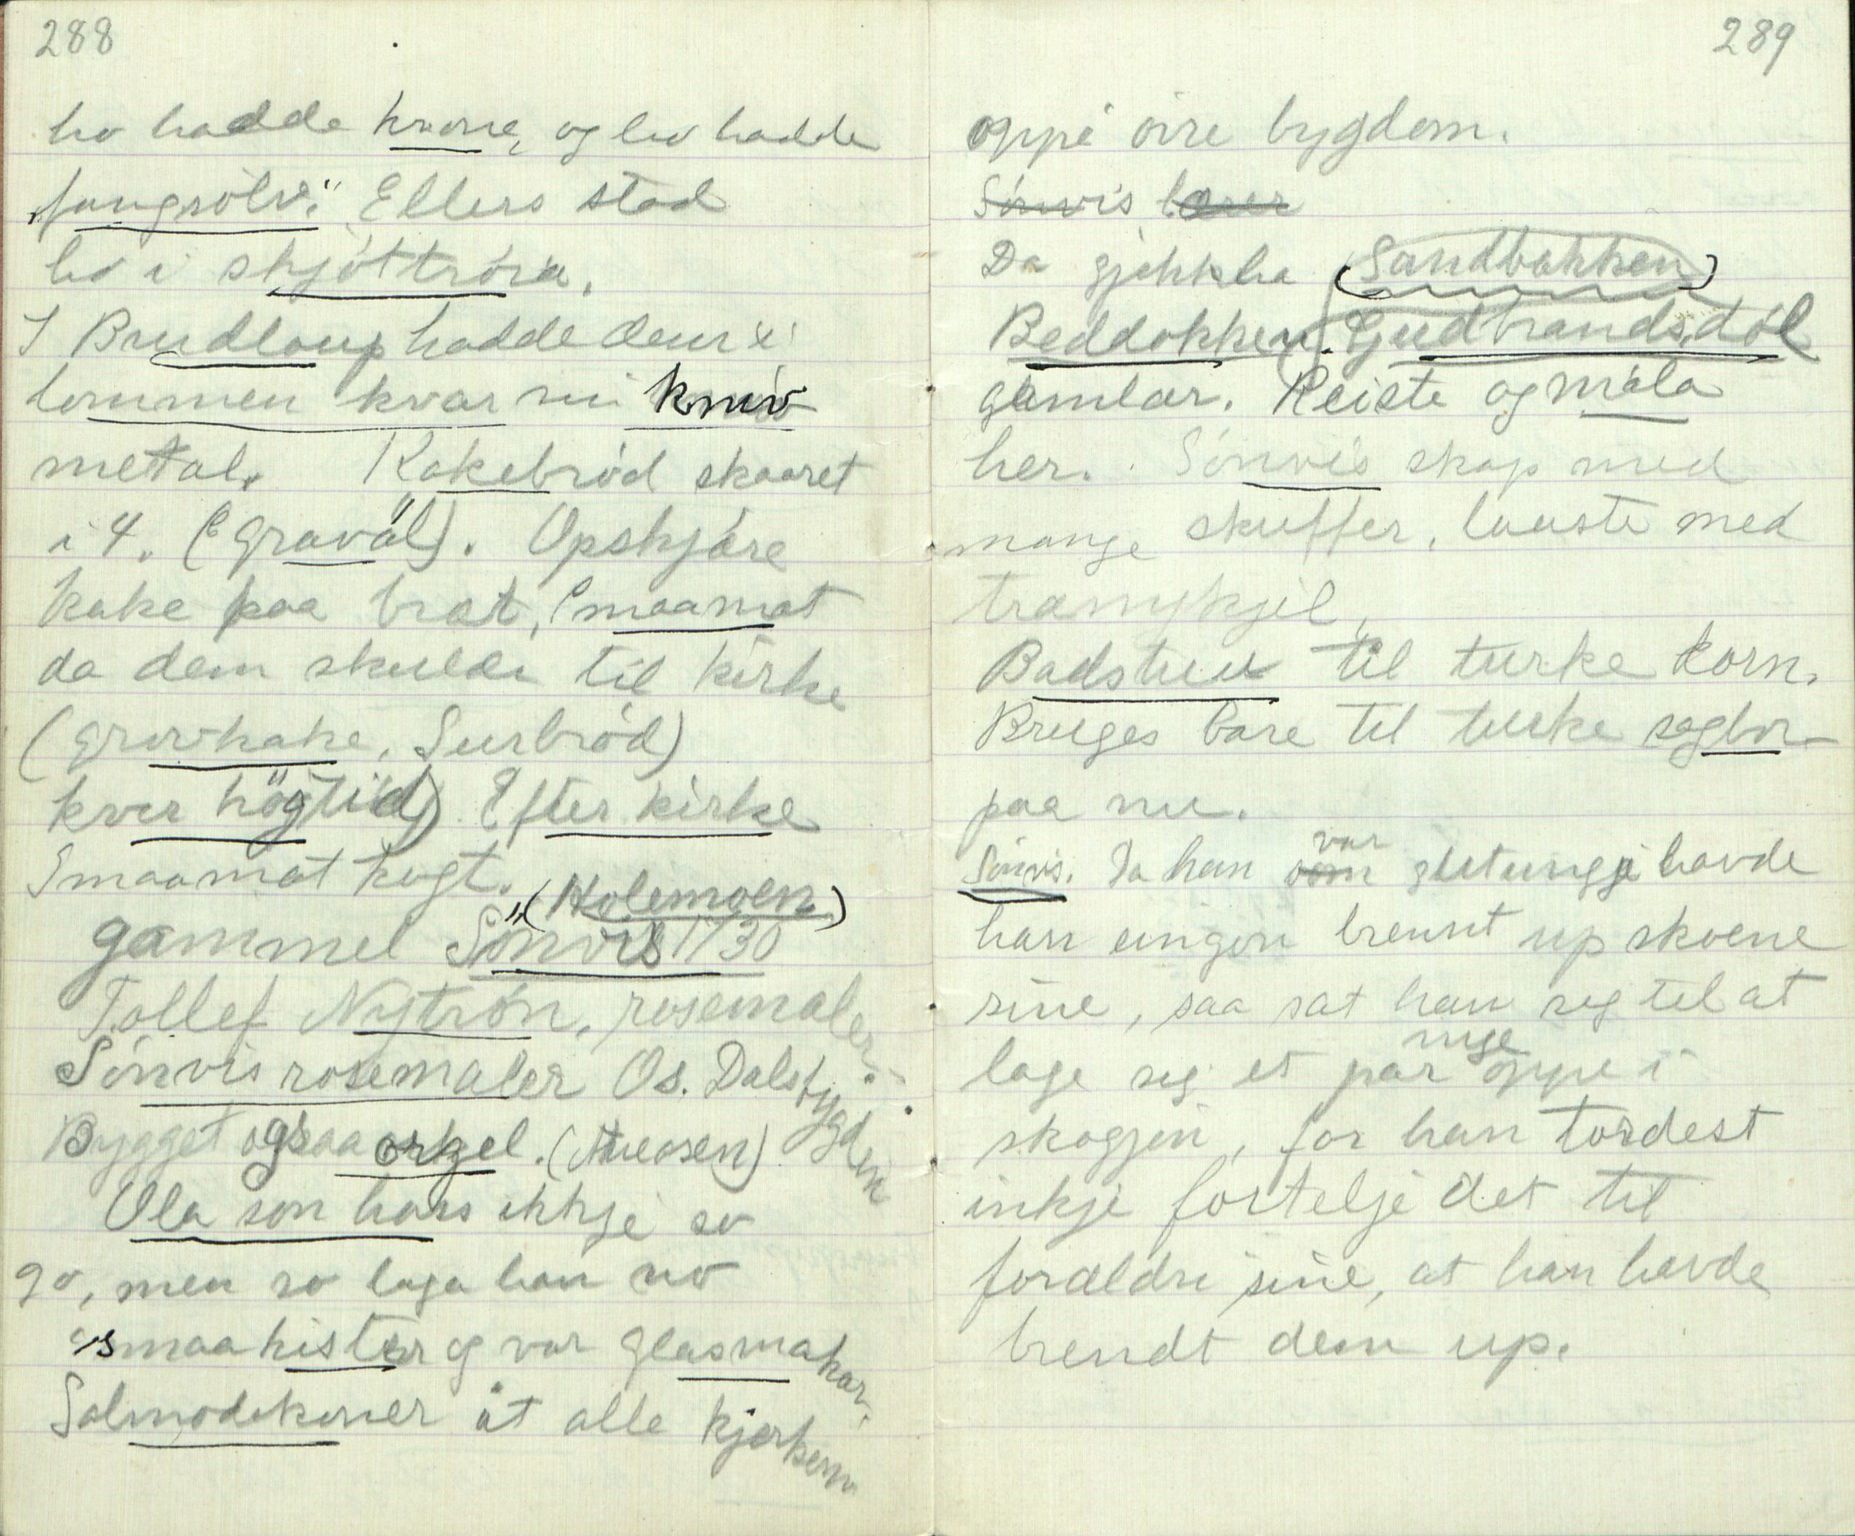 288
ho hadde krone, og ho hadde
"fangsölv". Ellers stod
ho i skjöttröia.
I Brudloup hadde dem i
lommen kvar sin kniv
metal. Kakebröd skaaret
i 4. (Gravöl). Opskjåre
kake paa brat, (maamat
da dem skulde til kirke
(grovkake, Surbröd)
kver högtid) Efter kirke
Smaamat kogt.
(Holemoen)
gammel Sönvis 1730
Tollef Nytrön, rosemaler.
Sönvis rosemaler Os. Dalsbygden
Bygget ogsaa orgel. (Nueosen)
Ola son hass ikkje so
go, men so laga han no
smaakister og var glasmakar.
Salmodekoner åt alle kjørkern
289
oppi øire bygdom.
Sönvis lærer
Da gjekk ha (Sandbakken)
Beddokken. Gudbrandsdöl
gamlar. Reiste og måla
her. Sönvis skap med
mange skuffer, lauste med
tramykjil.
Badstuu til turke korn.
Bruges bare til turke sagbor
paa nu.
Sönvis. Da han som var gjetungji havde
han eingon brennt up skoene
sine, saa sat han seg til at
lage seg et par nye oppe i
skogjen, for han tordest
inkje fortelje det til
foreldri sine, at han havde
brendt dem up.